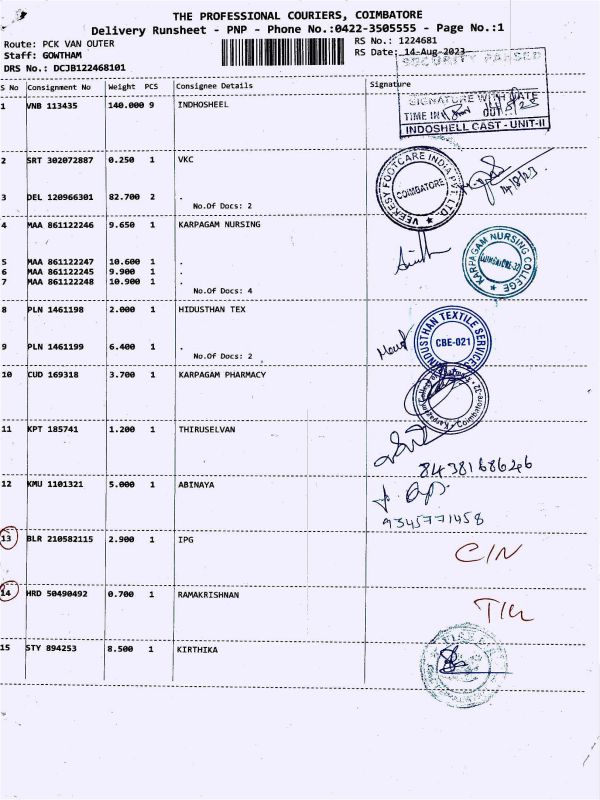 THE PROFESSIONAL COURIERS, COIMBATORE
Delivery Runsheet - PNP - Phone No.:0422-3505555 - Page No.:1
Route: PCK VAN OUTER RS No.: 1224681
Staff: GOWTHAM RS Date: 14-Aug-2023
DRS No.: DCJB122468101
SECURITY PASSED
S No Consignment No Weight PCS Consignee Details Signature
1 VNB 113435 140.000 9 INDHOSHEEL
SIGNATURE WITH DATE
TIME IN OUT
INDOSHELL CAST - UNIT-II
2 SRT 302072887 0.250 1 VKC
VEEKESY FOOTCARE INDIA PVT. LTD. COIMBATORE
14/8/23
3 DEL 120966301 82.700 2 .
No.Of Docs: 2
4 MAA 861122246 9.650 1 KARPAGAM NURSING
KARPAGAM NURSING COLLEGE COIMBATORE-32
5 MAA 861122247 10.600 1 .
6 MAA 861122245 9.900 1 .
7 MAA 861122248 10.900 1 .
No.Of Docs: 4
8 PLN 1461198 2.000 1 HIDUSTHAN TEX
HINDUSTHAN TEXTILE SERVICES CBE-021
9 PLN 1461199 6.400 1 .
No.Of Docs: 2
10 CUD 169318 3.700 1 KARPAGAM PHARMACY
Coimbatore-32
11 KPT 185741 1.200 1 THIRUSELVAN
8438168646
12 KMU 1101321 5.000 1 ABINAYA
9345771458
13 BLR 210582115 2.900 1 IPG
C/N
14 HRD 50490492 0.700 1 RAMAKRISHNAN
15 STY 894253 8.500 1 KIRTHIKA